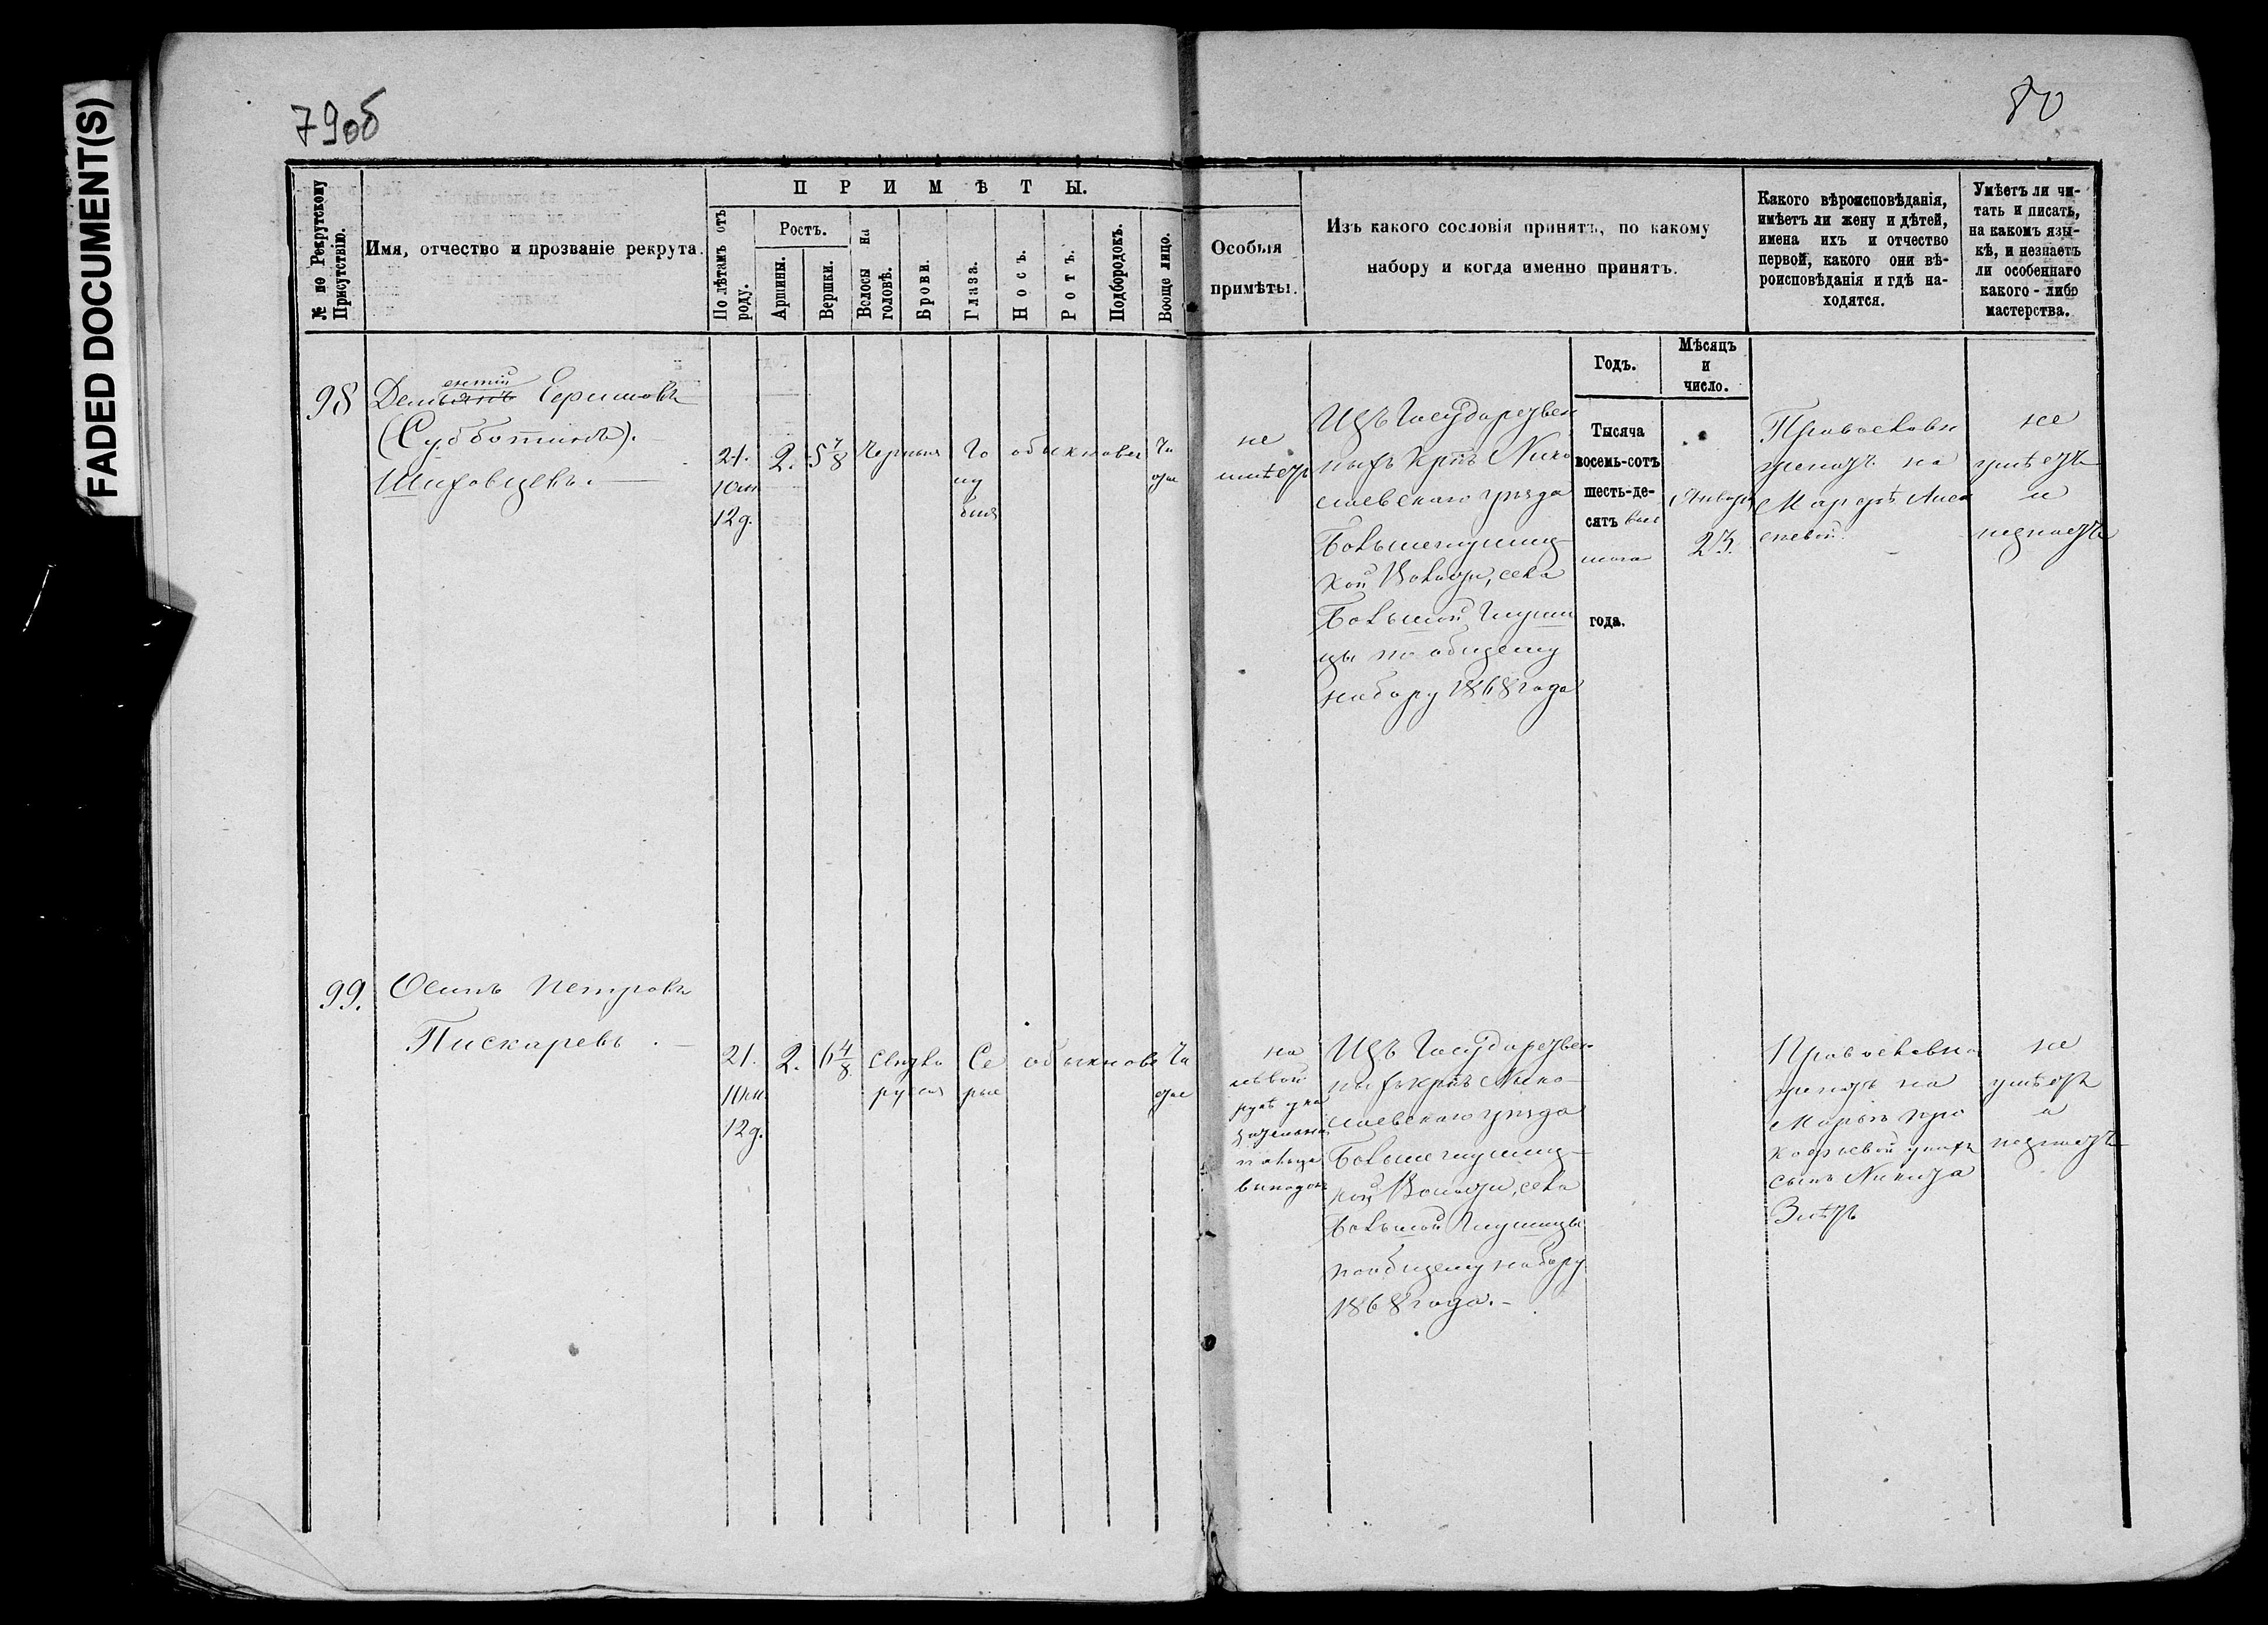 FADED DOCUMENT(S)
79об
80
№ по Рекрутскому Присутствію.
Имя, отчество и прозваніе рекрута.
ПРИМѢТЫ.
По лѣтамъ отъ роду.
Ростъ.
Аршины.
Вершки.
Волосы на головѣ.
Брови.
Глаза.
Носъ.
Ротъ.
Подбородокъ.
Вооще лицо.
Особыя
примѣты.
Изъ какого сословія принятъ, по какому
набору и когда именно принятъ.
Какого вѣроисповѣданія,
имѣетъ ли жену и дѣтей,
имена ихъ и отчество
первой, какого они вѣ-
роисповѣданія и гдѣ на-
ходятся.
Умѣетъ ли чи-
тать и писать,
на какомъ язы-
кѣ, и незнаетъ
ли особеннаго
какого-либо
мастерства.
Годъ.
Мѣсяцъ
и
число.
98
ентій
Демьянъ Ефимовъ
(Субботинъ).
Шиховцевъ.
21.
10 м
12 д.
2.
5 7/8
Черныя
Го
лу
быя
обыкновен
Чи
стое
не
имѣетъ
Изъ Государствен
ныхъ Крнъ Нико
лаевскаго уѣзда
Большеглушиц-
кой Волости, села
Большой Глуши
цы по общему
набору 1868 года
Тысяча
восемь-сотъ
шесть-де-
сятъ вось
маго
года.
Января
23.
Православн
женатъ на
Марфѣ Алек
сѣевой
не
умѣетъ
и
незнаетъ
99.
Осипъ Петровъ
Пискаревъ.
21.
10 м.
12 д.
2.
6 4/8
Свѣтло
русыя
Се
рые
обыкнове
Чи
стое
на
лѣвой
рукѣ ука
зательной
палецъ
Изъ Государствен
ныхъ крнъ Нико-
лаевскаго уѣзда
Большеглушиц-
кой Волости, села
Большой Глушицы
по общему набору
1868 года.-
Православна
женатъ на
Марьѣ Про
кофьевой унихъ
сынъ Никита
3 лѣтъ
не
умѣетъ
и
незнаетъ